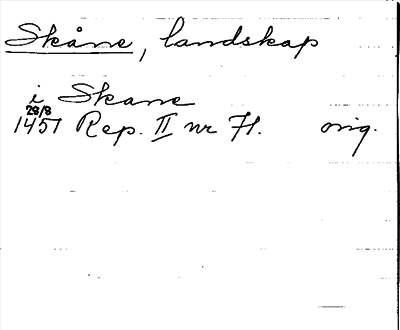 Skåne, landskap
i Skane
28/8
1451 Rep. II nr 71. orig.